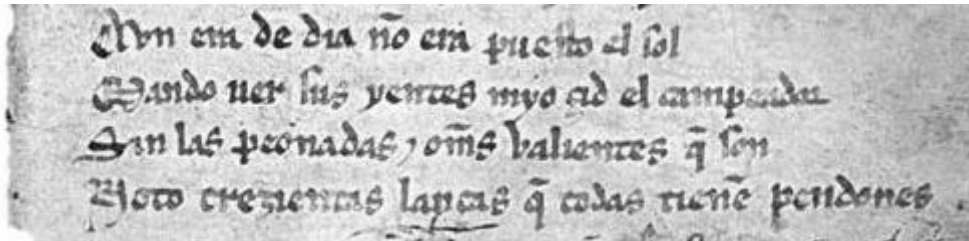 Avn era de dia nõ era puesto el sol
Mando uer sus yentes myo çid el campeador
Sin las peonadas ⁊ oms̃ valientes q̃ son
Noto trezientas lanças q̃ todas tienẽ pendones